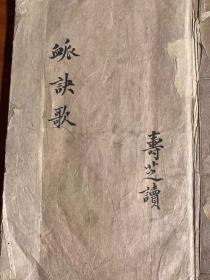 衇訣歌
壽芝讀